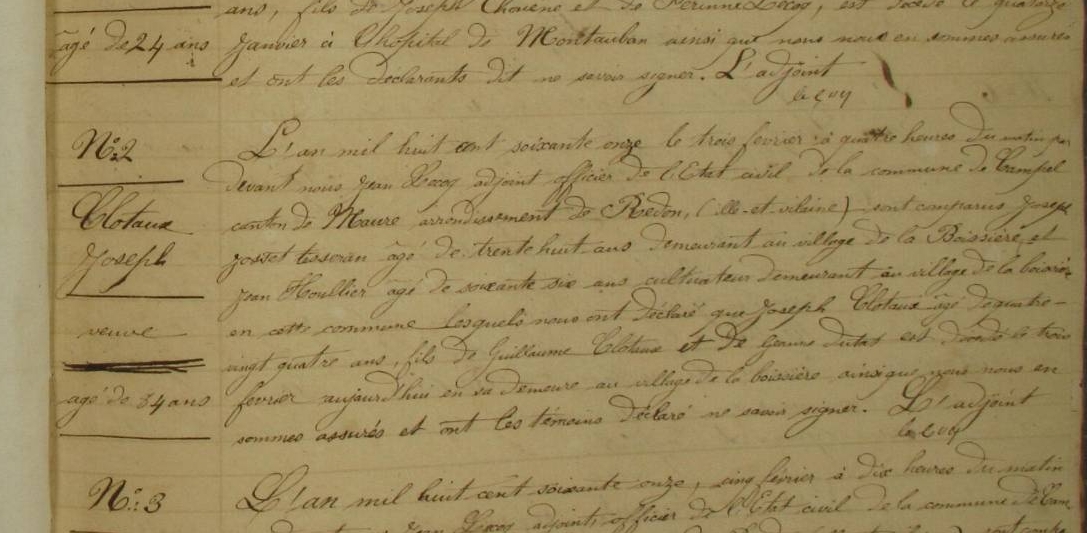 ans, fils de Joseph Chouene et de Perinne Lecoq, est décédé le quatorze
âgé de 24 ans
janvier à l'hopital de Montauban ainsi que nous nous en sommes assurés
et ont les déclarants dit ne savoir signer. L'adjoint
N°2
Clotaux
Joseph
veuve
agé de 84 ans
L'an mil huit cent soixante onze le trois fevrier à quatre heures du matin par
devant nous Jean Lecoq adjoint officier de l'Etat civil de la commune de Campel
canton de Maure arrondissement de Redon, (ille-et-vilaine) sont comparus Joseph
Josset tisseran âgé de trente huit ans demeurant au village de la Boissière, et
Jean Houllier âgé de soixante six ans cultivateur demeurant au village de la boissière
en cette commune lesquels nous ont déclaré que Joseph Clotaux âgé de quatre-
vingt quatre ans, fils de Guillaume Clotaux et De dutas est décédé le trois
fevrier aujourd'hui en sa demeure au village de la boissière ainsi que nous nous en
sommes assurés et ont les témoins déclaré ne savoir signer. L'adjoint
N°:3
L'an mil huit cent soixante onze, cinq février à dix heures du matin
Jean Lecoq adjoints officier de l'Etat civil de la commune de Cam-